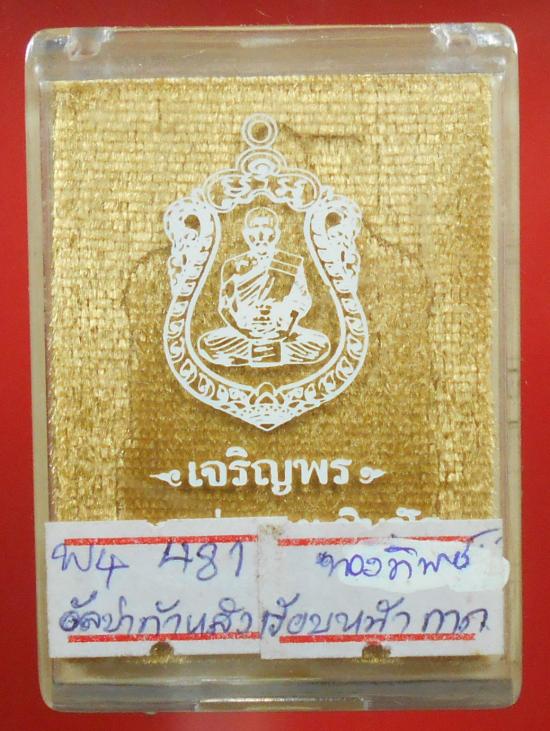 เจริญพร
พ4 481
ทองทิพย์
อัลปาก้าหลัง
เรียบหน้ากาก